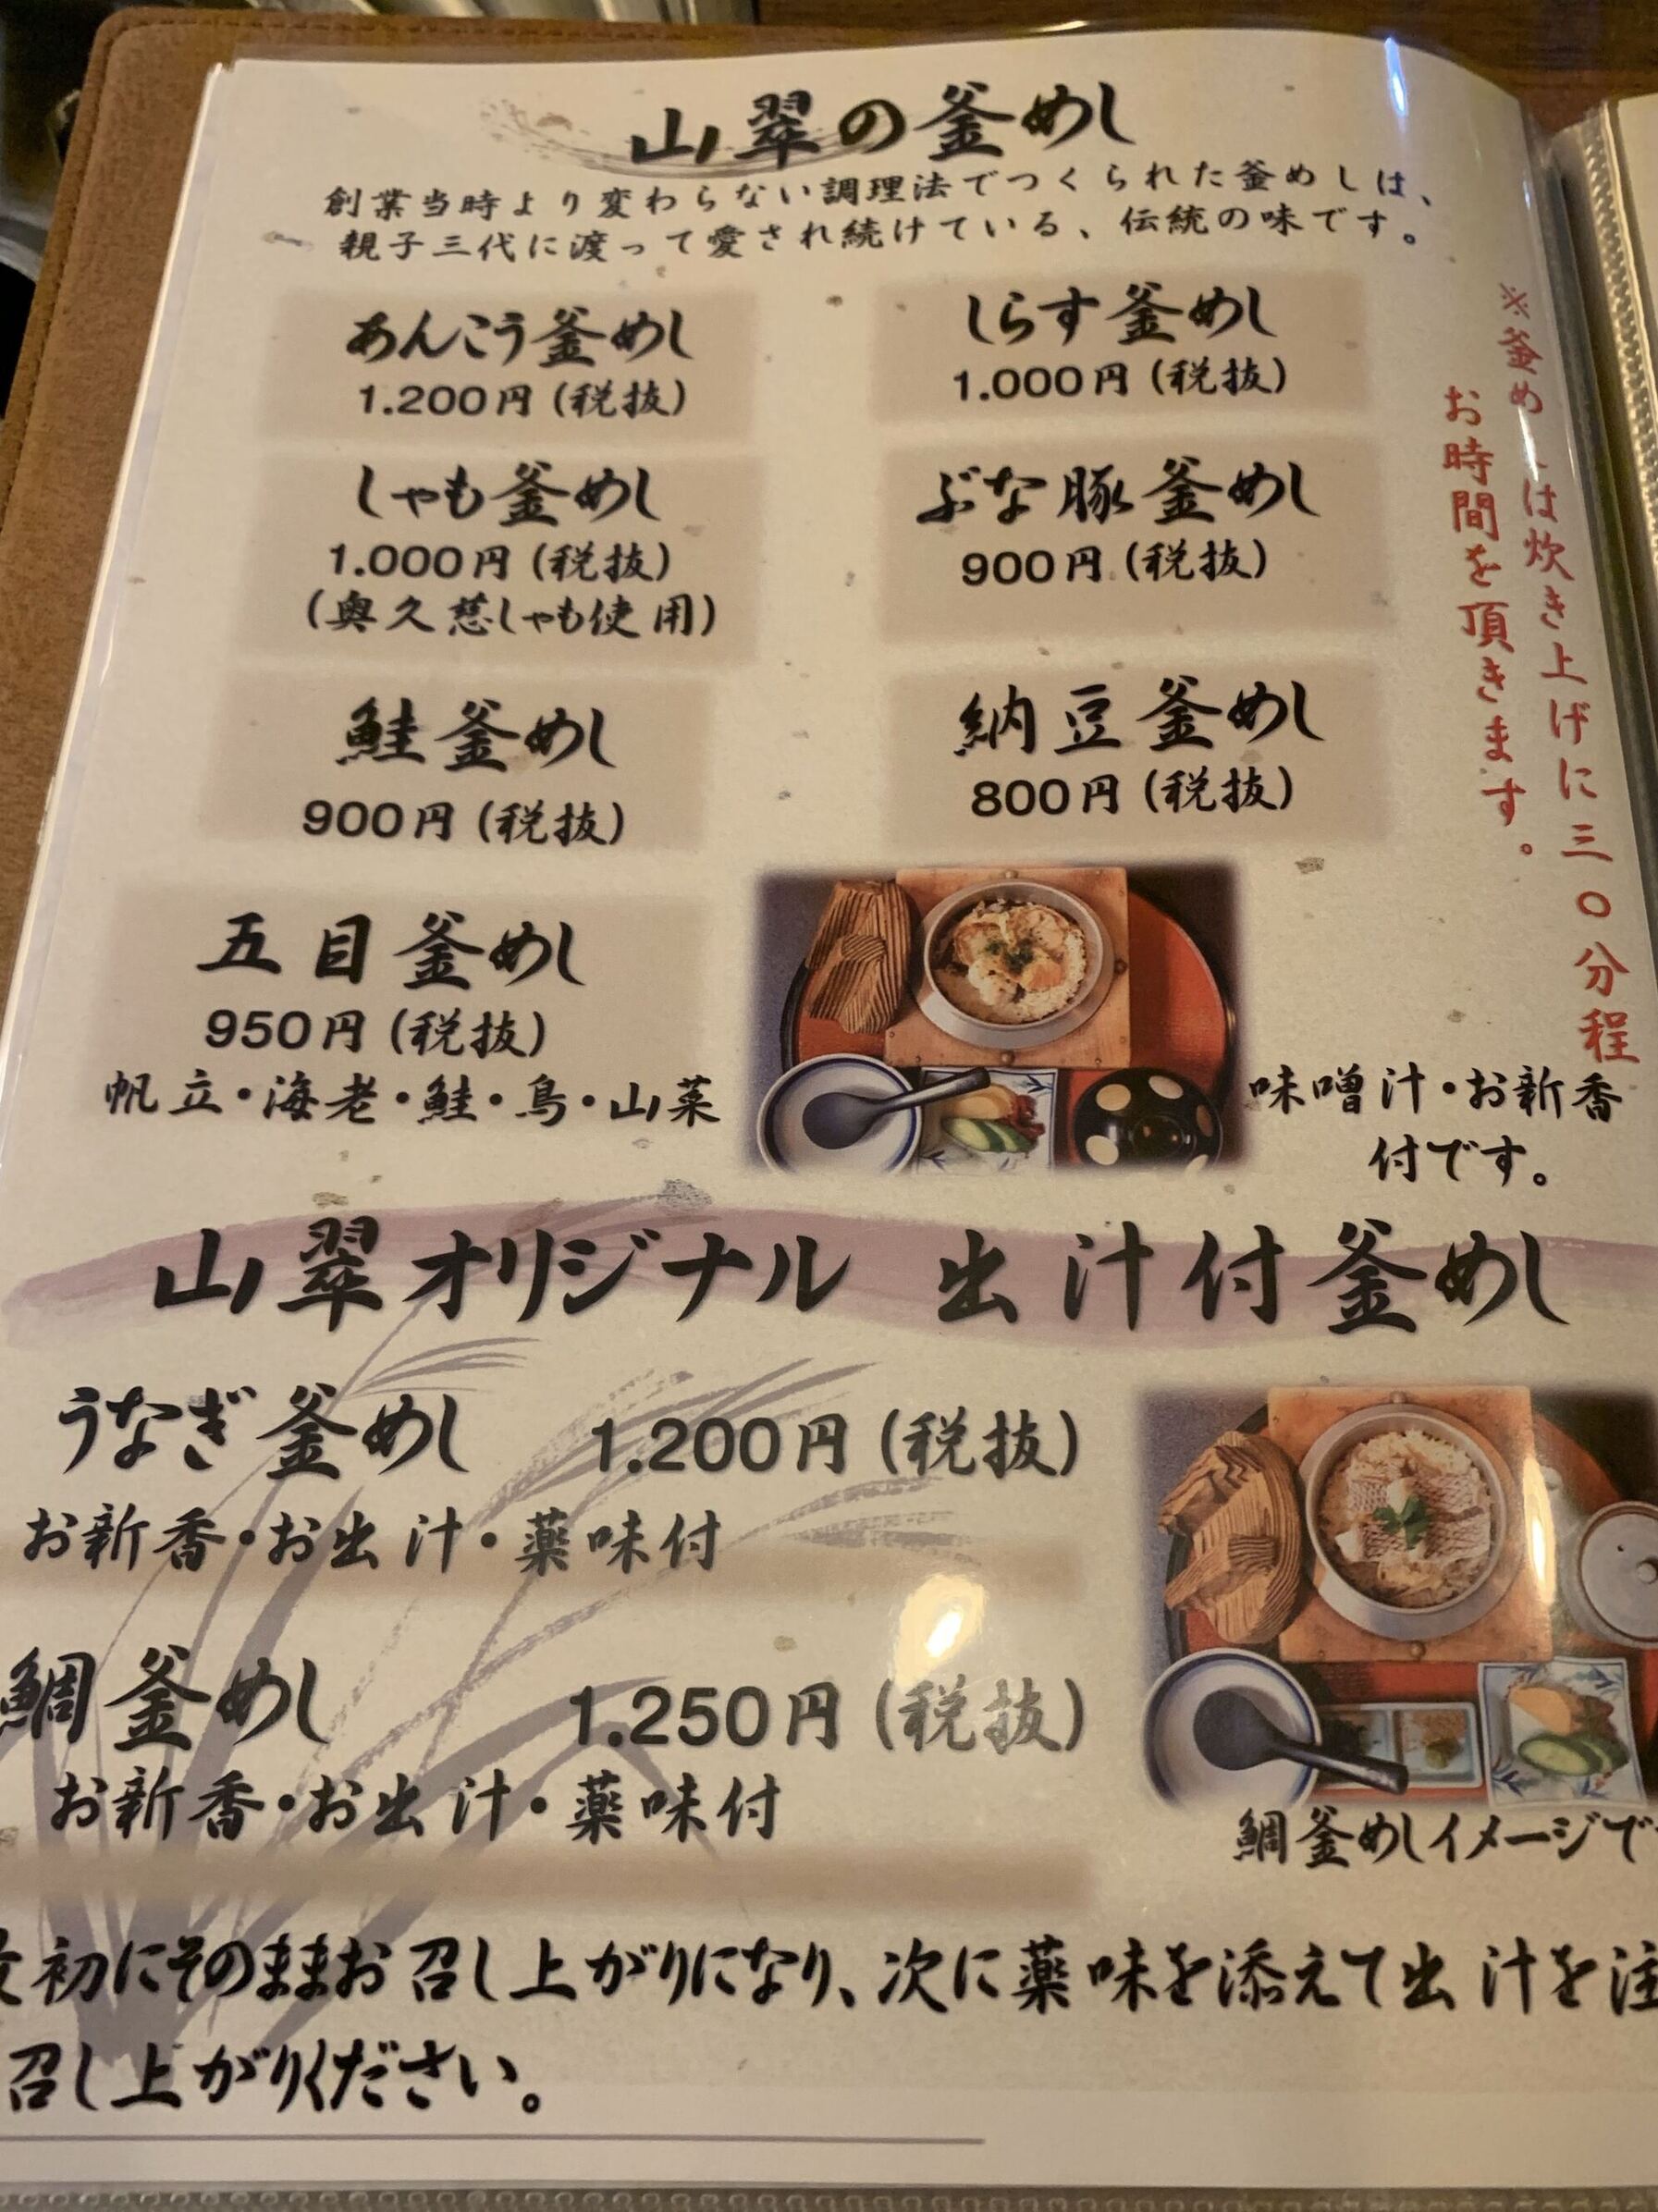 山翠の釜めし
創業当時より変わらない調理法でつくられた釜めしは、
親子三代に渡って愛され続けている、伝統の味です。
あんこう釜めし
1.200円(税抜)
しらす釜めし
1.000円(税抜)
しゃも釜めし
1.000円(税抜)
(奥久慈しゃも使用)
ぶな豚釜めし
900円(税抜)
鮭釜めし
900円(税抜)
納豆釜めし
800円(税抜)
※釜めしは炊き上げに三〇分程
お時間を頂きます。
五目釜めし
950円(税抜)
帆立・海老・鮭・鳥・山菜
味噌汁・お新香
付です。
山翠オリジナル 出汁付釜めし
うなぎ釜めし 1.200円(税抜)
お新香・お出汁・薬味付
鯛釜めし 1.250円(税抜)
お新香・お出汁・薬味付
鯛釜めしイメージで
初にそのままお召し上がりになり、次に薬味を添えて出汁を注
召し上がりください。